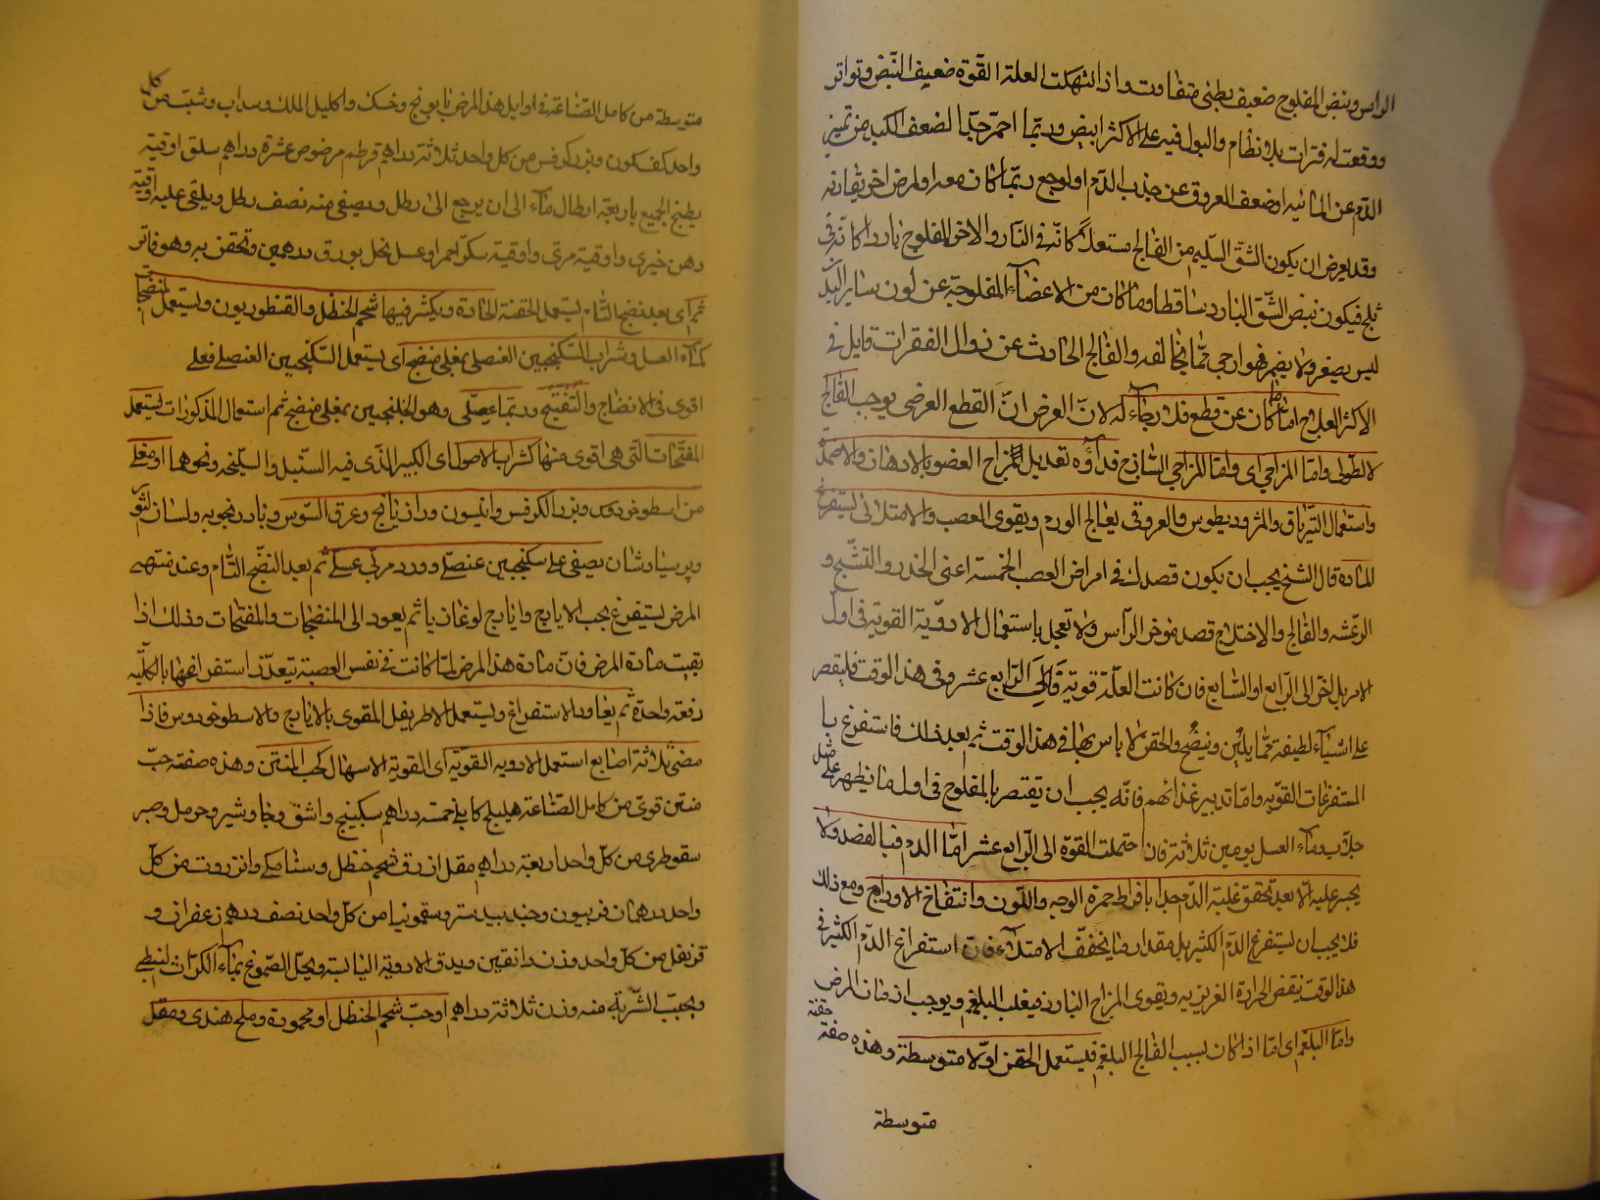 الراس ونبض المفلوج ضعيف بطئ متفاوت واذا انتهكت العلة القوة ضعيف النبض وتواتر
ووقعت له فترات بلا نظام والبول فيه على الاكثر ابيض وربما احمر جدا لضعف الكبد من تميز
الدم عن المائيه او ضعف العروق عن جذب الدم او لوجع ربما كان معه او لمرض اخر يقارنه
وقد يعرض ان يكون الشق السليم من الفالج مستعلا كانه في النار والاخر المفلوج باردا كانه في
ثلج فيكون نبض الشق البارد ساقطا وما كان من الاعضاء المفلوجة عن لون ساير البدن
ليس يصغر ولا يضمر فهو ارجى مما يخالفه والفالج الحادث عن زوال الفقرات قاتل في
الاكثر العلاج اما ما كان عن قطع فلا رجاء له لان العرض ان القطع العرضي يوجب الفالج
لا الطولي واما المزاجي اى واما المزاجي الساذج فدآؤه تعديل المزاج العضو بالادهان والاضمدة
واستعمال الترياق والمثروديطوس والعروقي يعالج الورم ويقوى العصب والامتلائى يستفرغ
المادة قال الشيخ يجب ان يكون قصدك في امراض العصب الخمسة اعنى الخدر والتشنج و
الرعشه والفالج والاختلاج قصد موخر الرأس ولا تعجل باستعمال الادوية القوية في اول
الامر بل اخر الى الرابع او السابع فان كانت العلة قوية فالى الرابع عشر وفى هذا الوقت فليقصر
على اشياء لطيفة مما يلين وينضج والحقن لا باس بها في هذا الوقت ثم بعد ذلك فاستفرغ با
المستفرغات القويه واما تدبير غذائهم فانه يجب ان يقتصر بالمفلوج في اول ما يظهر على مثل
جلاب وماء العسل يومين ثلاثة فان احتملت القوة الى الرابع عشر اما الدم فبالفصد ولا
يجسر عليه الا بعد تحقق غلبة الدم جدا بافراط حمرة الوجه واللون وانتفاخ الاوداج ومع ذلك
فلا يجب ان يستفرغ الدم الكثير بل مقدار ما يخفف الامتلاء فان استفراغ الدم الكثير في
هذا الوقت ينقص الحرارة الغريزيه ويقوى المزاج البارد فيغلب البلغم ويوجب ازمان المرض
واما البلغم اى اما اذا كان بسبب الفالج البلغم فليستعمل الحقن اولا متوسطة وهذه صفة حقنة
متوسطة
متوسطة من كامل الصناعة في اوايل هذا المرض بابونج وحسك واكليل الملك وسداب وشبت من كل
واحد كف كمون وبزر كرفس من كل واحد ثلاثة دراهم قرطم مرضوض عشرة دراهم سلق اوقية
يطبخ الجميع باربعة ارطال ماء الى ان يرجع الى رطل ويصفى منه نصف رطل ويلقى عليه اوقية
دهن خيرى واوقية مرى واوقية سكر احمر او عسل نحل بورق درهمين وتحقن به وهو فاتر
ثم اى بعد نضجها التام يستعمل الحقنة الحادة ويكثر فيها شحم الحنظل والقنطوريون ويستعمل المنضجات
كماء العسل وشراب السكنجبين العنصلى بمغلى منضج اى يستعمل السكنجبين العنصلى فعلى
اقوى في الانضاج والتفتيح وربما يعطى وهو الجلنجبين بمغلى منضج ثم استعمال المذكورات يستعمل
المفتحات التى هى اقوى منها كشراب الاصول اى الكبير الذى فيه السنبل والسليخه ونحوهما او مغلى
من اسطوخودوس وبزر الكرفس وانيسون ورازيانج وعرق السوس وبادرنجوبه ولسان الثور
وپرسياوشان يصفى على سكنجبين عنصلى وورد مربى عسلى ثم بعد النضج التام وعند منتهى
المرض يستفرغ بحب الايارج وايارج لوغاذيا ثم يعود الى المنضجات والمفتحات وذلك اذا
بقيت مادة المرض فان مادة هذا المرض لما كانت في نفس العصبة يتعذر استفراغها بالكلية
دفعة واحدة ثم يعاود الاستفراغ ويستعمل الاطريفل المقوى بالايارج والاسطوخودوس فاذا
مضى ثلاثة اصابع استعمل الادويه القوية اى القوية الاسهال كحب المنتن وهذه صفته حب
منتن قوى من كامل الصناعة هليلج كابلى خمسة دراهم سكبينج واشق وجاوشير وحرمل وصبر
سقوطرى من كل واحد اربعة دراهم مقل ازرق شحم حنظل وسنا مكى وانزروت من كل
واحد درهمان فربيون وجندبيدستر وسقمونيا من كل واحد نصف درهم زعفران و
قرنفل من كل واحد وزن دانقين ويدق الادوية اليابسة ويحل الصموغ بماء الكراث النبطى
ويحبب الشربة منه وزن ثلاثة دراهم او حب شحم الحنظل او محمودة وملح هندى ومقل